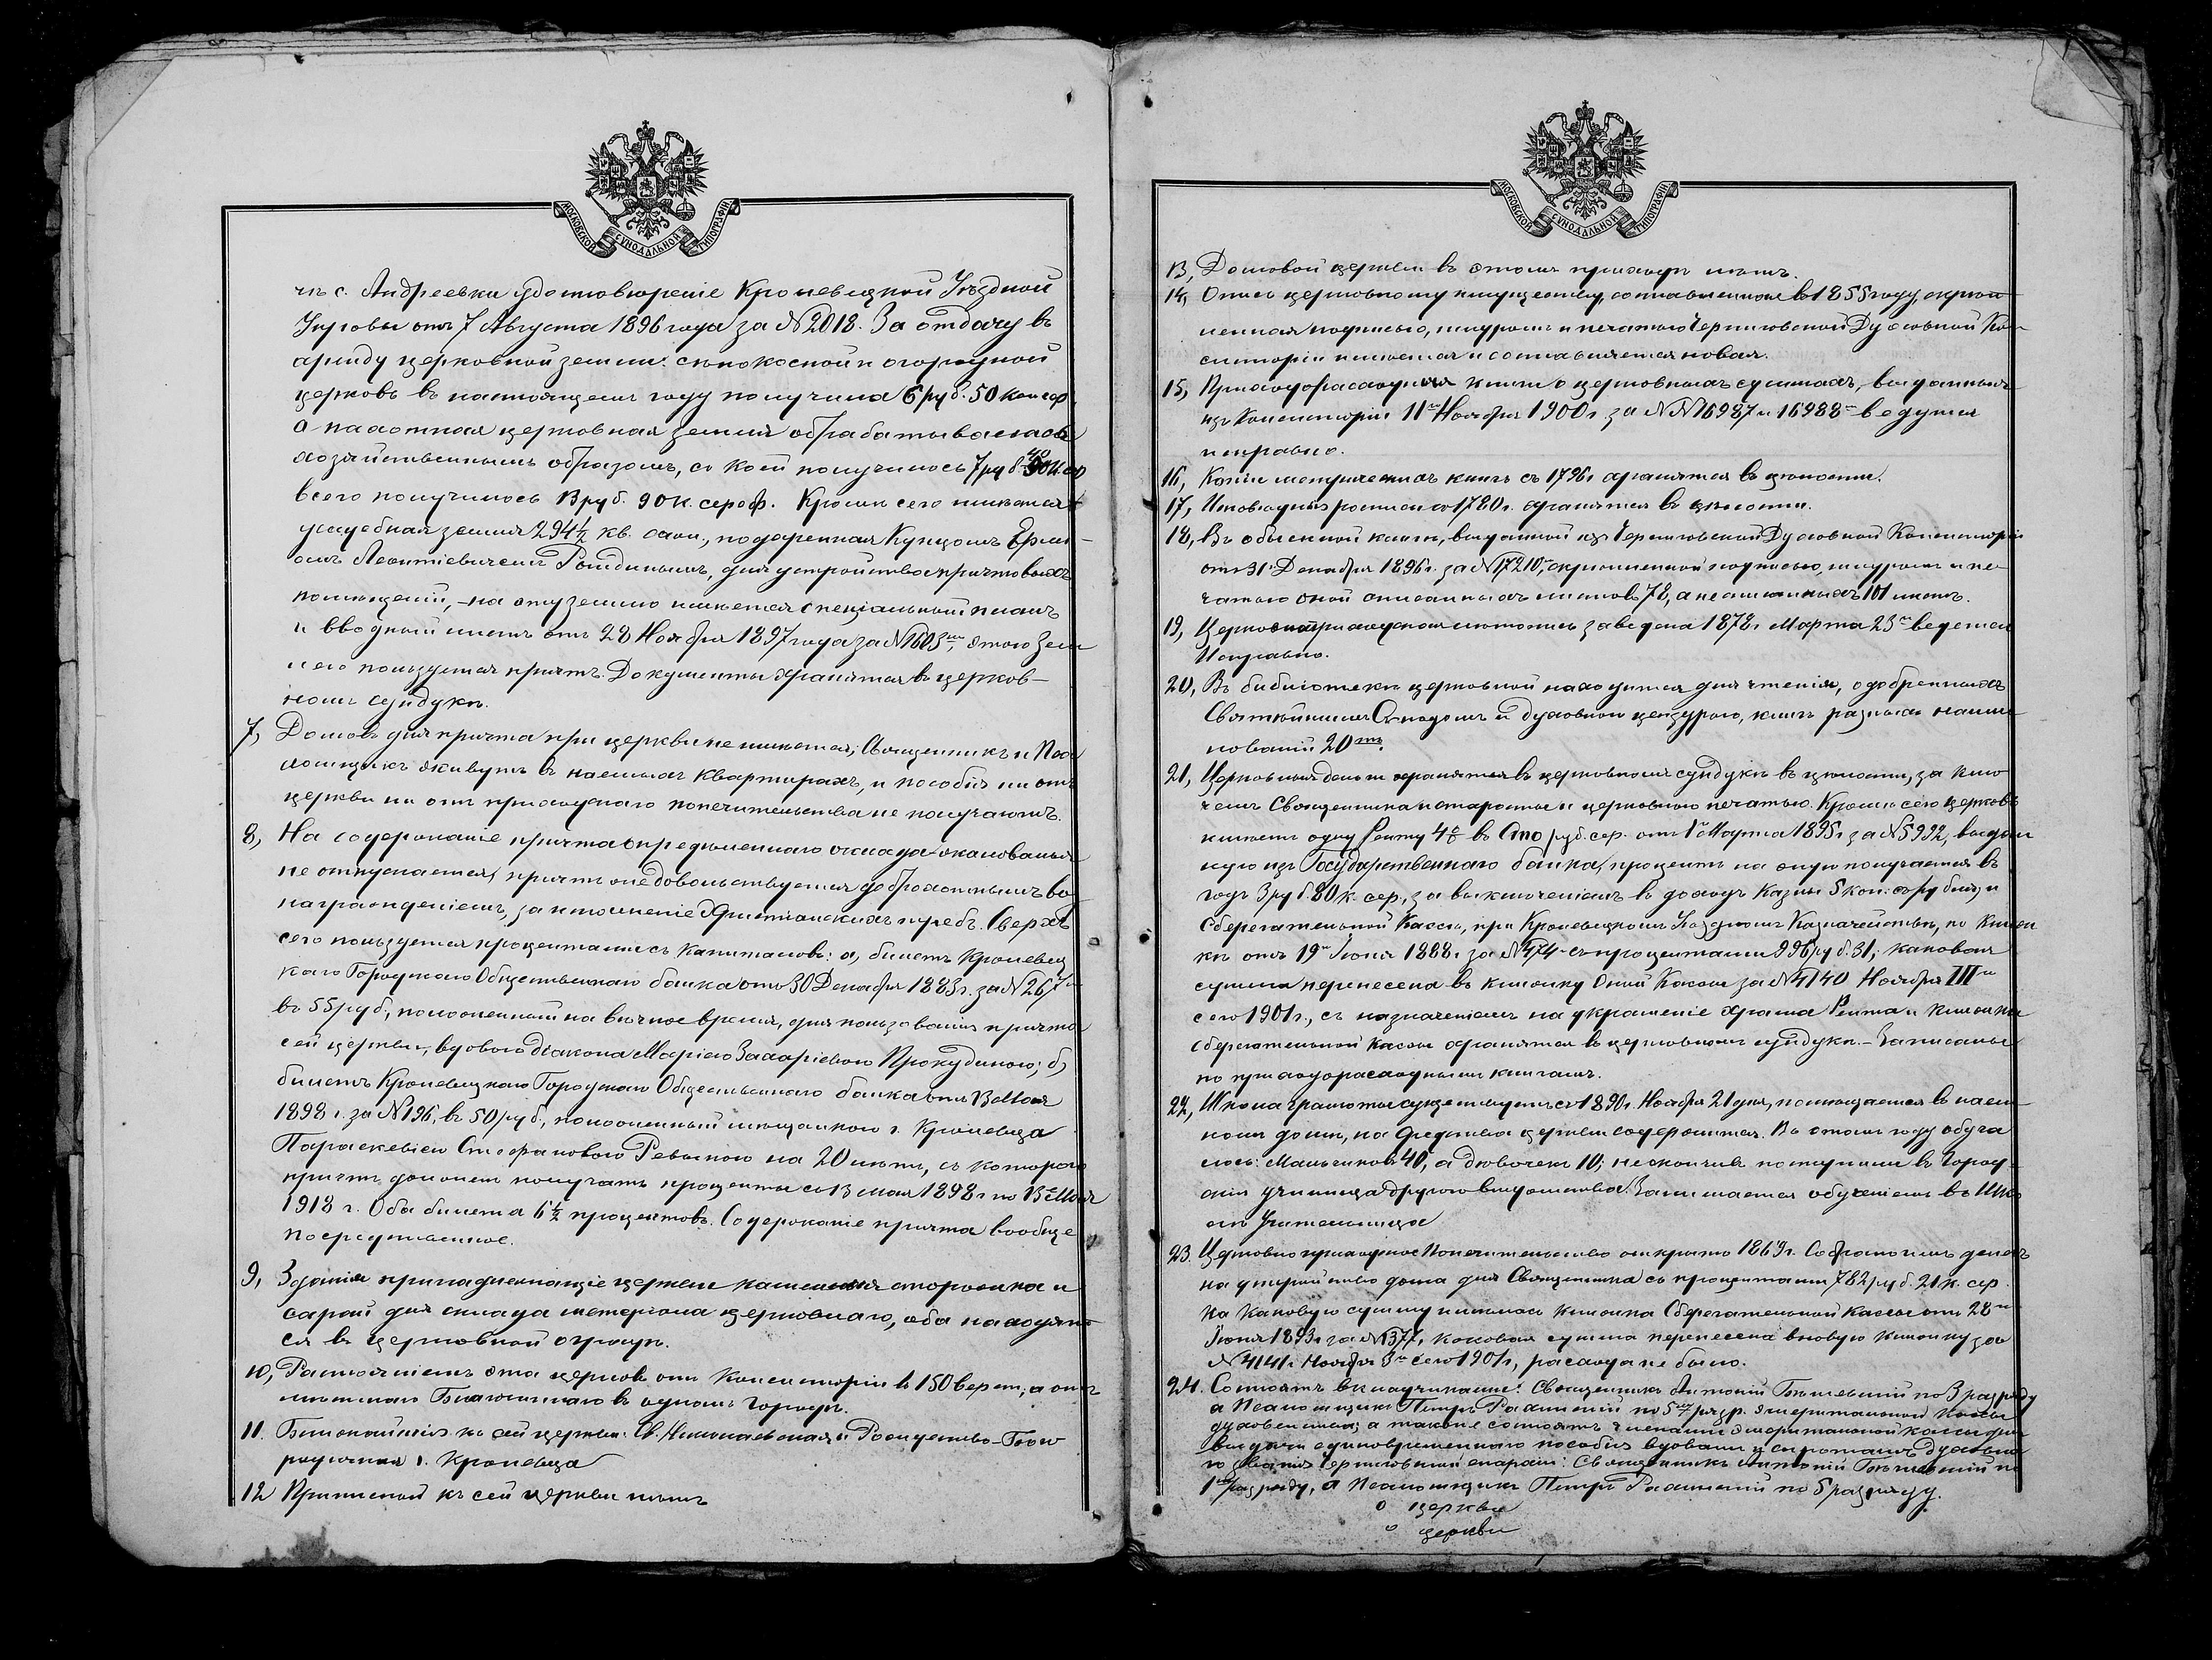 МОСКОВСКОЙ СѴНОДАЛЬНОЙ ТИПОГРАФІИ
с. Андреевки удостовѣреніе Кролевецкой Уѣздной
Управы отъ 7 Августа 1896 года за № 2018. За отдачу въ
аренду церковной земли: сѣнокосной и огородной
церковь въ настоящемъ году получила 6 руб. 50 коп сер
а пахотная церковная земля обрабатывалась
хозяйственнымъ образомъ, съ коей получилось 7 руб 40 к
всего получилось 13 руб. 90 к. сереб. Кромѣ сего имѣется
усадебная земля 294½ кв. саж., подаренная Купцомъ
Леонтіевичемъ для устройства причтовыхъ
помѣщеній, - на эту землю имѣется спеціальный планъ
и вводный листъ отъ 28 Ноября 1897 года за № 1603, этою зем
лею пользуется причтъ. Документы хранятся въ церков-
номъ сундукѣ.
7, Домовъ для причта при церкви не имѣется; Священникъ и Пса
ломщикъ живутъ въ наемныхъ квартирахъ, и пособія ни отъ
церкви ни отъ приходскаго попечительства не получаютъ.
8, На содержаніе причта опредѣленнаго оклада жалованья
не отпускается, причтъ довольствуется доброхотнымъ во
награжденіемъ, за исполненіе Христіанскихъ требъ. Сверхъ
сего пользуется процентами съ капиталовъ: а, билетъ Кролевец
каго Городскаго Общественнаго банка отъ 30 Декабря 1883 г. за № 267
въ 55 руб., положенный на вѣчное время, для пользованія причта
сей церкви, вдовою Діакона Маріею Захаріевою Прокудиною; б)
билетъ Кролевецкаго Городскаго Общественнаго банка отъ 13 Мая
1898 г. за № 196, въ 50 руб., положенный мѣщанкою г. Кролевца
Параскевіею Стефановою на 20 лѣтъ, съ котораго
причтъ долженъ получать проценты съ 13 мая 1898 г по 13 Мая
1918 г. Оба билета 6½ процентовъ. Содержаніе причта вообще
посредственное.
9, Зданія принадлежащіе церкви каменная сторожка и
сарай для склада матеріала церковнаго, оба находят-
ся въ церковной оградѣ.
10, Разстояніемъ эта церковь отъ Консисторіи въ 150 верст; а отъ
мѣстнаго Благочиннаго въ одномъ Городѣ.
11. Ближайшія къ сей церкви: Св. Николаевская и Рождество-Бого
родичная г. Кролевца
12 Приписной къ сей церкви нѣтъ
МОСКОВСКОЙ СѴНОДАЛЬНОЙ ТИПОГРАФІИ
13, Домовой церкви въ этомъ приходѣ нѣтъ.
14, Опись церковному имуществу, составленная въ 1855 году, скрѣп
ленная подписью, шнуромъ и печатью Черниговской Духовной Кон
систоріи имѣется и составляется новая.
15, Приходорасходныя книги о церковныхъ суммахъ, выданныя
изъ Консисторіи 11го Ноября 1900 г за №№ 16987 и 16988 ведутся
исправно.
16, Копіи метрическихъ книгъ съ 1796 г хранятся въ цѣлости.
17, Исповѣдныя росписи съ 1780 г. хранятся въ цѣлости.
18, Въ обыскной книгѣ, выданной изъ Черниговской Духовной Консисторіи
отъ 31 Декабря 1896 г. за № 17210, скрѣпленной подписью, шнуромъ и пе
чатью оной описанныхъ листовъ 78, а неписанныхъ 101 листъ.
19, Церковноприходская лѣтопись заведена 1878 г Марта 23го ведется
исправно.
20, Въ библіотекѣ церковной находится для чтенія, одобренныхъ
Святѣйшимъ Сѵнодомъ и духовною цензурою, книгъ разныхъ наиме
нованій 20ть.
21, Церковныя деньги хранятся въ церковномъ сундукѣ въ цѣлости, за клю
чемъ Священника и старосты и церковною печатью. Кромѣ сего церковь
имѣетъ одну Ренту 4% въ Сто руб. сер. отъ 1го Марта 1895 г за № 5992, выдан
ную изъ Государственнаго банка, процентъ на оную получается въ
годъ 3 руб. 80 к. сер., за выключеніемъ въ доходъ Казны 5 коп: съ рубля, и
Сберегательной Кассы, при Кролевецкомъ Уѣздномъ Казначействѣ, по книж
кѣ отъ 19го Іюня 1888 г за № 474 съ процентами 996 руб. 31, каковая
сумма перенесена въ книжку Оной Кассы за № 4140 Ноября III
сего 1901 г., съ назначеніемъ на украшеніе храма Рента и книжка
Сберегательной кассы хранятся въ церковномъ сундукѣ. - Записаны
по приходорасходнымъ книгамъ.
22, Школа грамоты существуетъ съ 1890 г. Ноября 21 дня, помѣщается въ наем
номъ домѣ, на средства церкви содержится. Въ этомъ году обуча
лось: мальчиковъ 40, а дѣвочекъ 10; не окончивъ поступили въ Город-
скія училища другого вѣдомства. Занимается обученіемъ въ Шко
лѣ Учительница
23. Церковно приходское Попечительство открыто 1869 г. Собрано имъ денегъ
на устройство дома для Священника съ процентами 782 руб. 21 к. сер.
на каковую сумму имѣлась книжка Сберегательной Кассы отъ 28го
Іюня 1893 г за № 1377, каковая сумма перенесена въ новую книжку за
№ 4141 г Ноября 3го сего 1901 г, расхода не было.
24. Состоятъ вкладчиками: Священникъ Антоній по 3 разряду
а Псаломщикъ Петръ по 5му разр. эмеритальной кассы
духовенства; а также состоятъ членами эмеритальной кассы для
выдачи единовременнаго пособія вдовамъ и сиротамъ Духовна
го званія Черниговской епархіи: Священникъ Антоній по
1му разряду, а Псаломщикъ Петръ по 5 разряду.
церкви
церкви